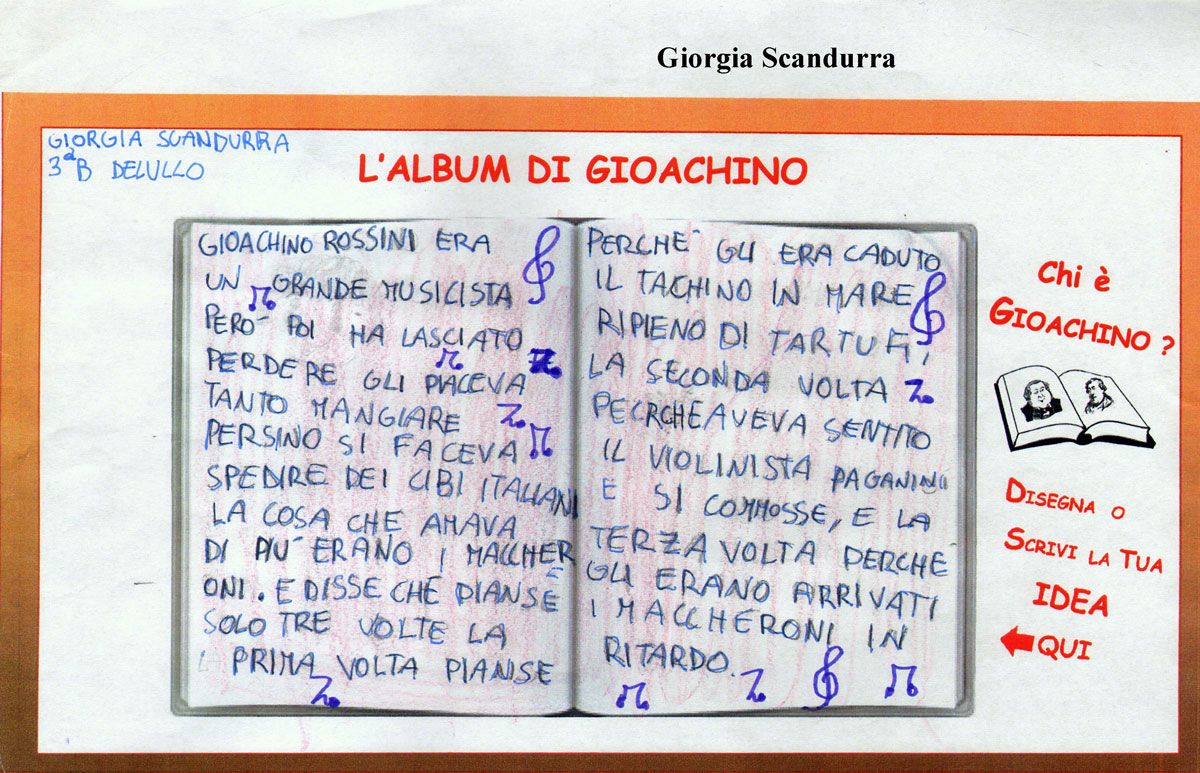 Giorgia Scandurra
GIORGIA SCANDURRA
3ªB DELULLO
L'ALBUM DI GIOACHINO
GIOACHINO ROSSINI ERA
UN GRANDE MUSICISTA
PERO' POI HA LASCIATO
PERDERE GLI PIACEVA
TANTO MANGIARE
PERSINO SI FACEVA
SPEDIRE DEI CIBI ITALIANI
LA COSA CHE AMAVA
DI PIU' ERANO I MACCHER
ONI. E DISSE CHE PIANSE
SOLO TRE VOLTE LA
PRIMA VOLTA PIANSE
PERCHE' GLI ERA CADUTO
IL TACHINO IN MARE
RIPIENO DI TARTUFI,
LA SECONDA VOLTA
PECRCHE AVEVA SENTITO
IL VIOLINISTA PAGANINI
E SI COMMOSSE, E LA
TERZA VOLTA PERCHE'
GLI ERANO ARRIVATI
I MACCHERONI IN
RITARDO.
Chi è
GIOACHINO ?
DISEGNA O
SCRIVI LA TUA
IDEA
QUI